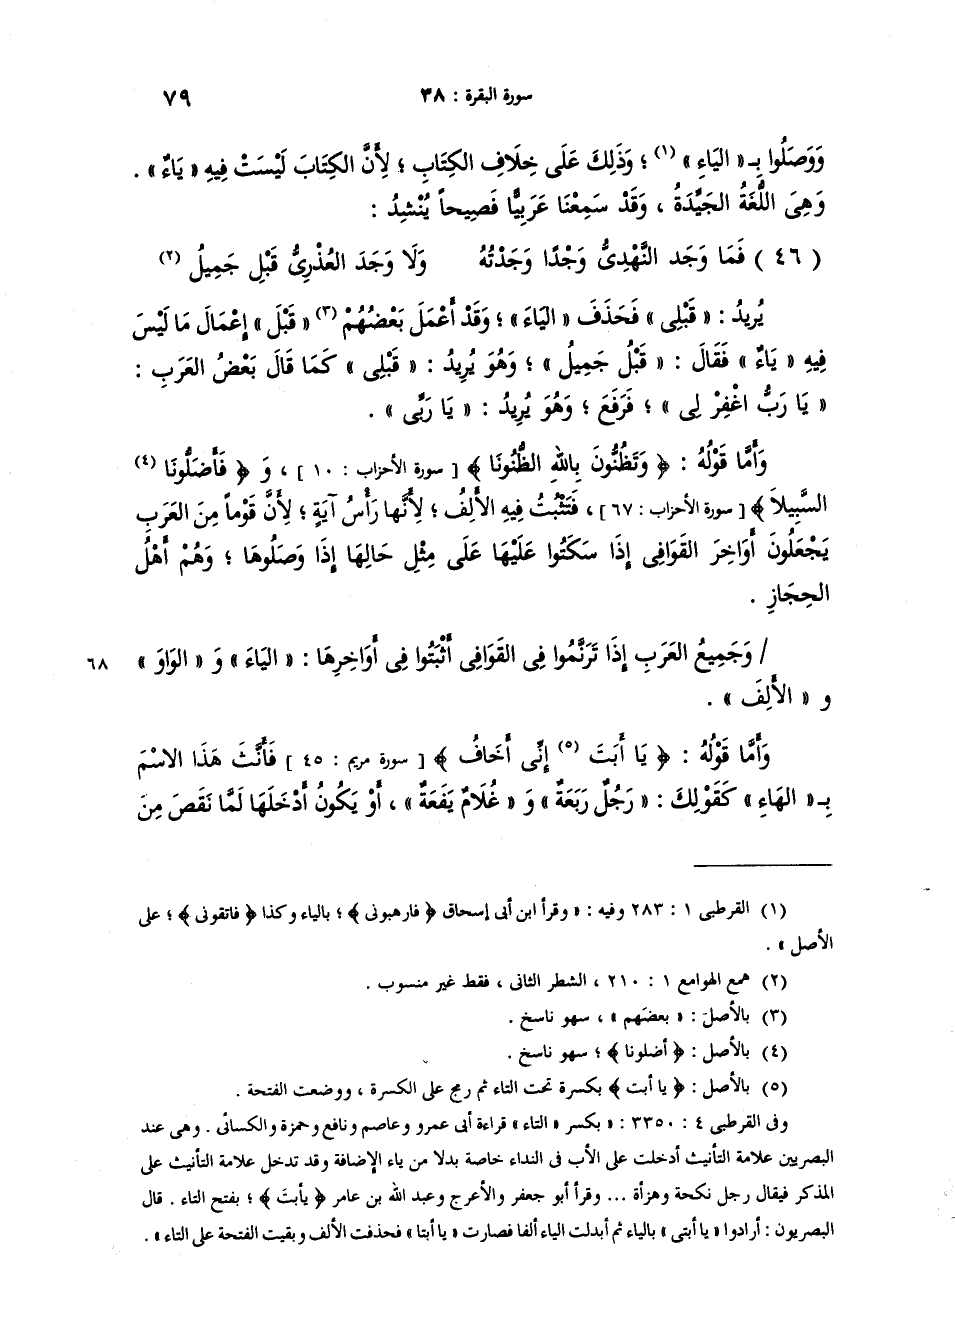 سورة البقرة : ٣٨ ٧٩
وَوَصَلُوا بِـ « اليَاءِ » (١) ؛ وَذَلِكَ عَلَى خِلَافِ الكِتَابِ ؛ لِأَنَّ الكِتَابَ لَيْسَتْ فِيهِ « يَاءٌ » .
وَهِىَ اللُّغَةُ الجَيِّدَةُ ، وَقَدْ سَمِعْنَا عَرَبِيًّا فَصِيحاً يُنْشِدُ :
( ٤٦ ) فَمَا وَجَد النَّهْدِىُّ وَجْدًا وَجَدْتُهُ وَلَا وَجَدَ العُذْرِىُّ قَبْلِ جَمِيلُ (٢)
يُرِيدُ : « قَبْلِى » فَحَذَفَ « اليَاءَ » ؛ وَقَدْ أَعْمَلَ بَعْضُهُمْ (٣) « قَبْلَ » إِعْمَالَ مَا لَيْسَ
فِيهِ « يَاءٌ » فَقَالَ : « قَبْلُ جَمِيلُ » ؛ وَهُوَ يُرِيدُ : « قَبْلِى » كَمَا قَالَ بَعْضُ العَرَبِ :
« يَا رَبُّ اغْفِرْ لِى » ؛ فَرَفَعَ ؛ وَهُوَ يُرِيدُ : « يَا رَبِّى » .
وَأَمَّا قَوْلُهُ : ﴿ وَتَظُنُّونَ بِاللهِ الظُّنُونَا ﴾ [ سورة الأحزاب : ١٠ ] ، وَ ﴿ فَأَضَلُّونَا (٤)
السَّبِيلَا ﴾ [ سورة الأحزاب : ٦٧ ] ، فَتَثْبُتُ فِيهِ الأَلِفُ ؛ لِأَنَّها رَأْسُ آيَةٍ ؛ لِأَنَّ قَوْماً مِنَ العَرَبِ
يَجْعَلُونَ أَوَاخِرَ القَوَافِى إِذَا سَكَتُوا عَلَيْهَا عَلَى مِثْلِ حَالِهَا إِذَا وَصَلُوهَا ؛ وَهُمْ أَهْلُ
الحِجَازِ .
/ وَجَمِيعُ العَرَبِ إِذَا تَرَنَّمُوا فِى القَوَافِى أَثْبَتُوا فِى أَوَاخِرِهَا : « اليَاءَ » وَ « الوَاوَ » ٦٨
و « الأَلِفَ » .
وَأَمَّا قَوْلُهُ : ﴿ يَا أَبَتَ (٥) إِنِّى أَخَافُ ﴾ [ سورة مريم : ٤٥ ] فَأَنَّثَ هَذَا الاسْمَ
بِـ « الهَاءِ » كَقَوْلِكَ : « رَجُلٌ رَبَعَةٌ » وَ « غُلَامٌ يَفَعَةٌ » ، أَوْ يَكُونُ أَدْخَلَهَا لَمَّا نَقَصَ مِنَ
(١) القرطبى ١ : ٢٨٣ وفيه : « وقرأ ابن أبى إسحاق ﴿ فارهبونى ﴾ ؛ بالياء وكذا ﴿ فاتقونى ﴾ ؛ على
الأصل » .
(٢) همع الهوامع ١ : ٢١٠ ، الشطر الثانى ، فقط غير منسوب .
(٣) بالأصل : « بعضَهم » ، سهو ناسخ .
(٤) بالأصل : ﴿ أضلونا ﴾ ؛ سهو ناسخ .
(٥) بالأصل : ﴿ يا أبت ﴾ بكسرة تحت التاء ثم رمج على الكسرة ، ووضعت الفتحة .
وفى القرطبى ٤ : ٣٣٥٠ : « بكسر « التاء » قراءة أبى عمرو وعاصم ونافع وحمزة والكسائى . وهى عند
البصريين علامة التأنيث أدخلت على الأب فى النداء خاصة بدلا من ياء الإضافة وقد تدخل علامة التأنيث على
المذكر فيقال رجل نكحة وهزأة ... وقرأ أبو جعفر والأعرج وعبد الله بن عامر ﴿ يأبتَ ﴾ ؛ بفتح التاء . قال
البصريون : أرادوا « يا أبتى » بالياء ثم أبدلت الياء ألفا فصارت « يا أبتا » فحذفت الألف وبقيت الفتحة على التاء » .